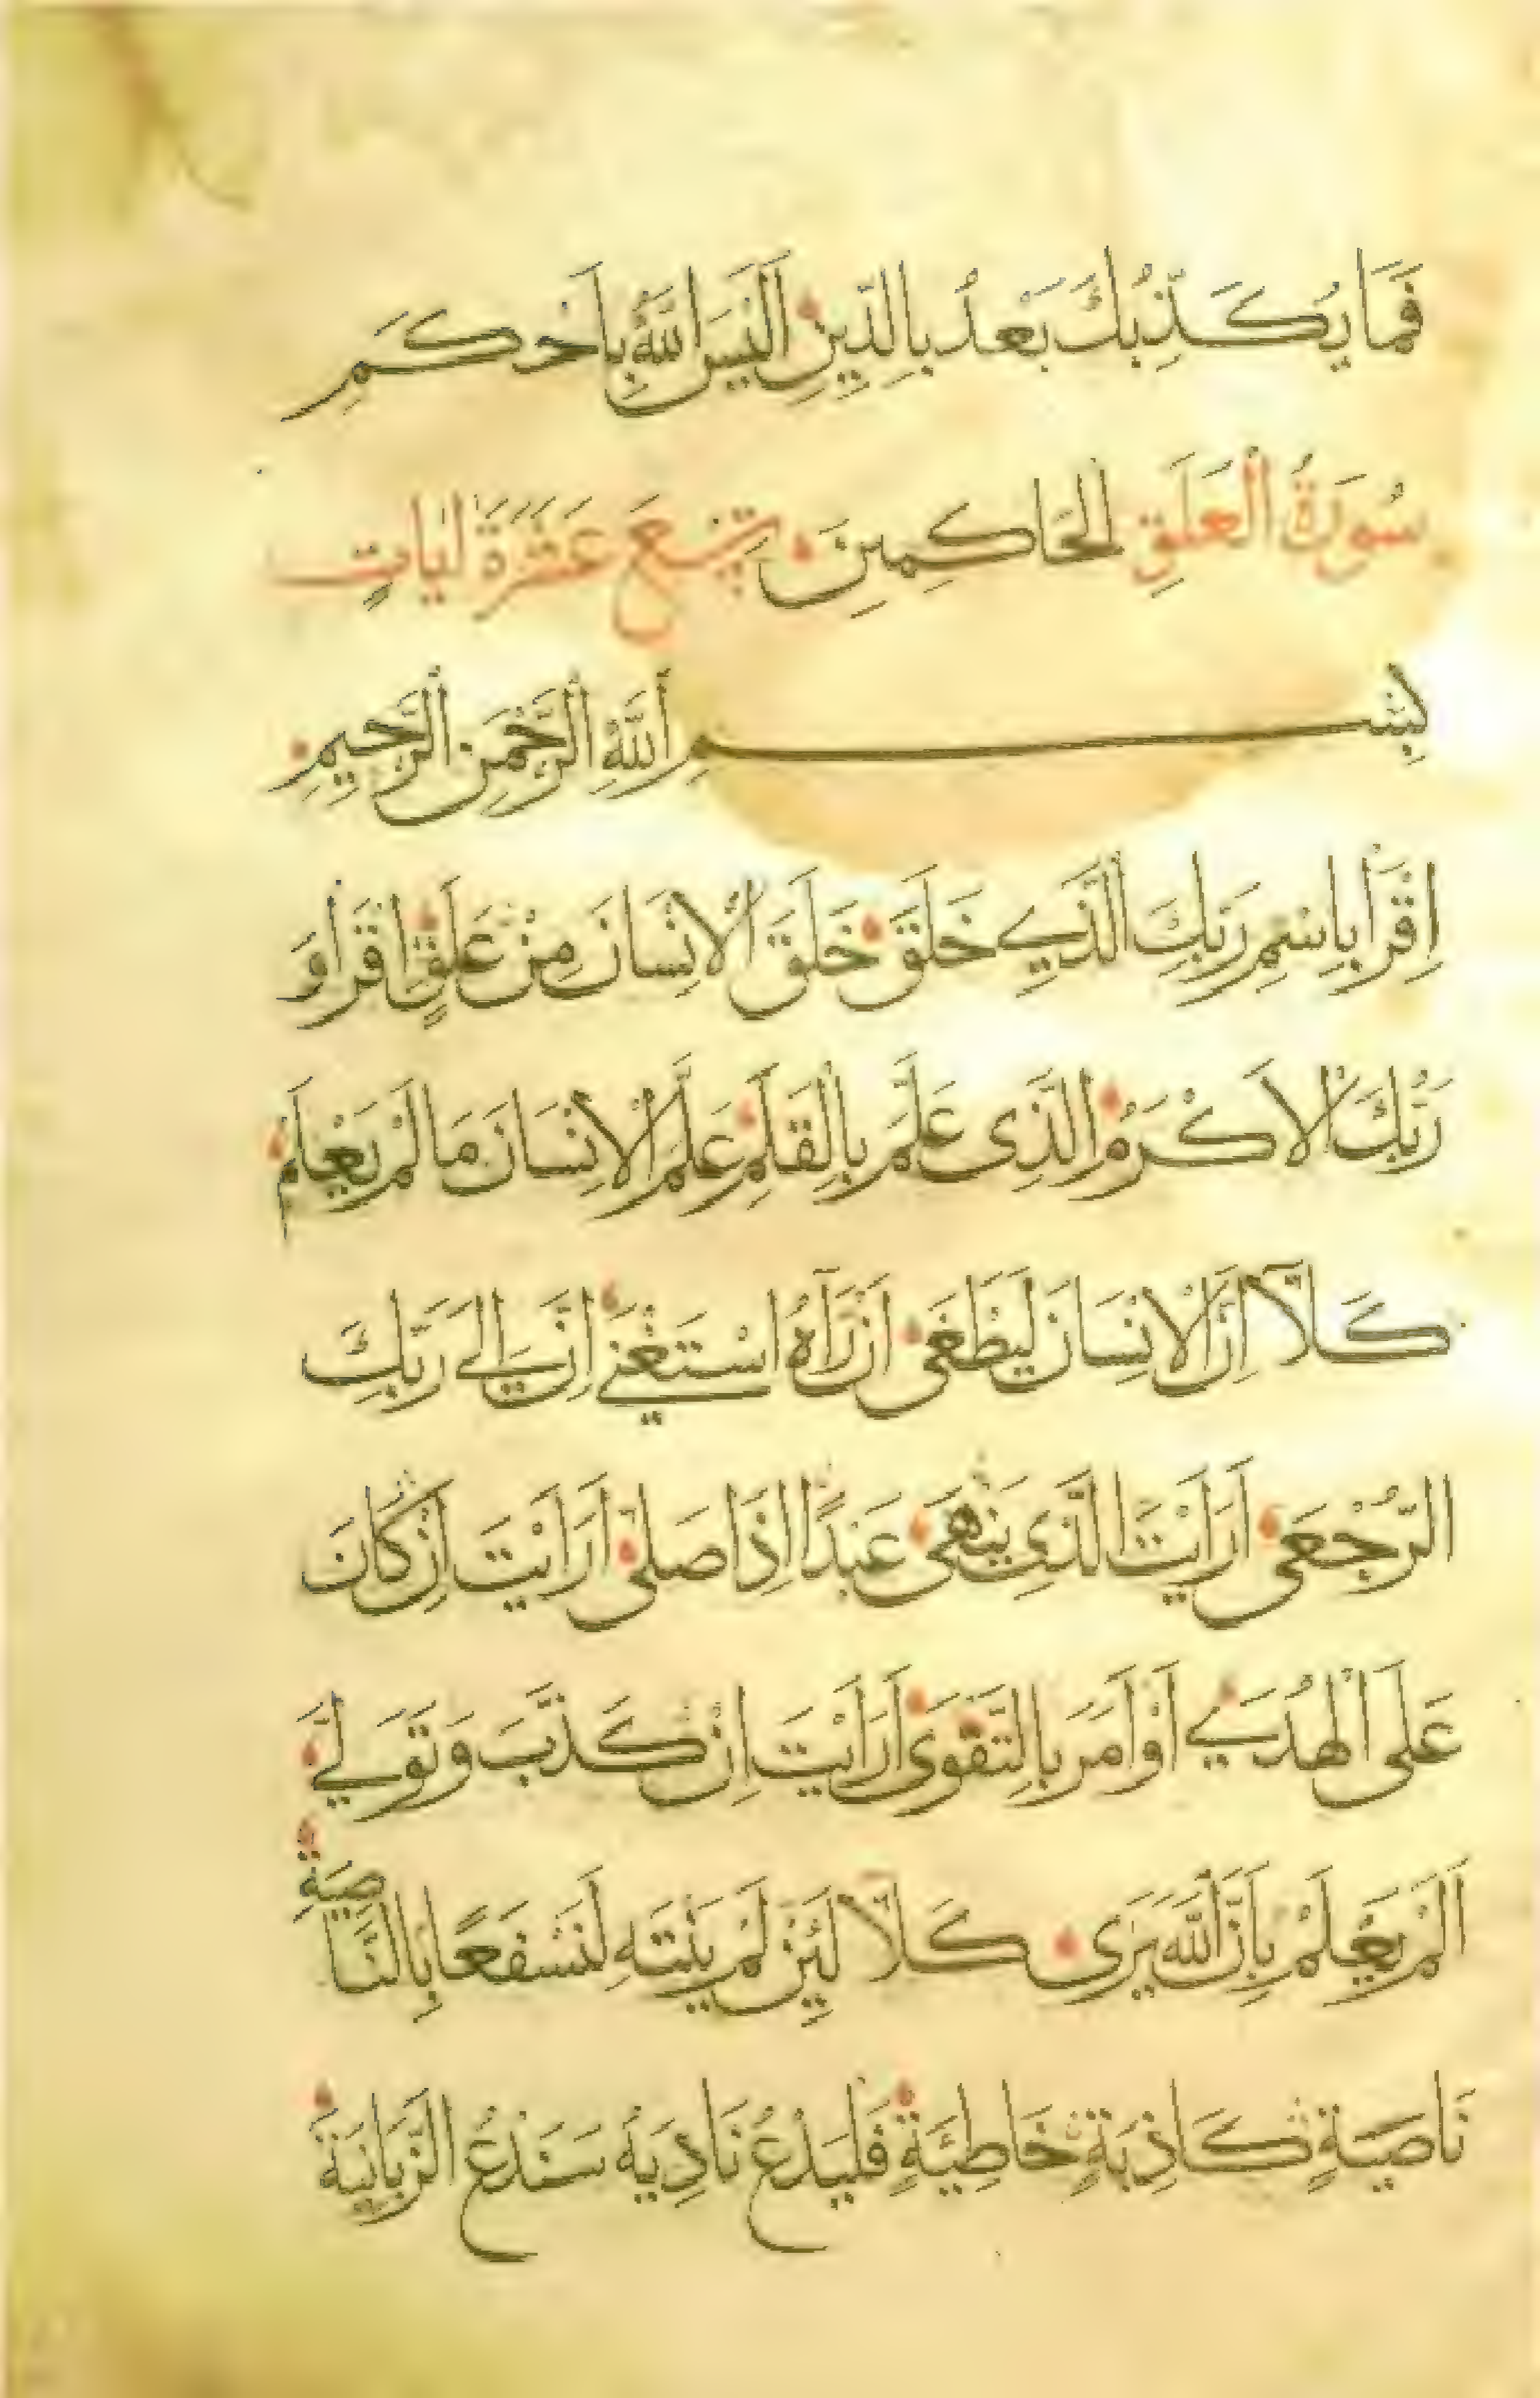 فَمَا يُكَذِّبُكَ بَعْدُ بِالدِّينِ اَلَيْسَ اللّٰهُ بِاَحْكَمِ
سُورَةُ الْعَلَقِ الْحَاكِمِينَ تِسْعَ عَشَرَةَ اٰيَاتٍ
بِسْمِ اللَّهِ الرَّحْمٰنِ الرَّحِيمِ
اِقْرَأْ بِاسْمِ رَبِّكَ الَّذِي خَلَقَ خَلَقَ الْاِنْسَانَ مِنْ عَلَقٍ اِقْرَأْ وَ
رَبُّكَ الْاَكْرَمُ الَّذِى عَلَّمَ بِالْقَلَمِ عَلَّمَ الْاِنْسَانَ مَا لَمْ يَعْلَمْ
كَلَّا اِنَّ الْاِنْسَانَ لَيَطْغَى اَنْ رَآهُ اسْتَغْنَي اِنَّ اِلَي رَبِّكَ
الرُّجْعَى اَرَاَيْتَ الَّذِى يَنْهَى عَبْدًا اِذَا صَلَّى اَرَاَيْتَ اِنْ كَانَ
عَلَى الْهُدَي اَوْ اَمَرَ بِالتَّقْوَى اَرَاَيْتَ اِنْ كَذَّبَ وَتَوَلَّي
اَلَمْ يَعْلَمْ بِاَنَّ اللَّهَ يَرَى كَلَّا لَئِنْ لَمْ يَنْتَهِ لَنَسْفَعًا بِالنَّاصِيَةِ
نَاصِيَةٍ كَاذِبَةٍ خَاطِئَةٍ فَلْيَدْعُ نَادِيَهُ سَنَدْعُ الزَّبَانِيَةَ